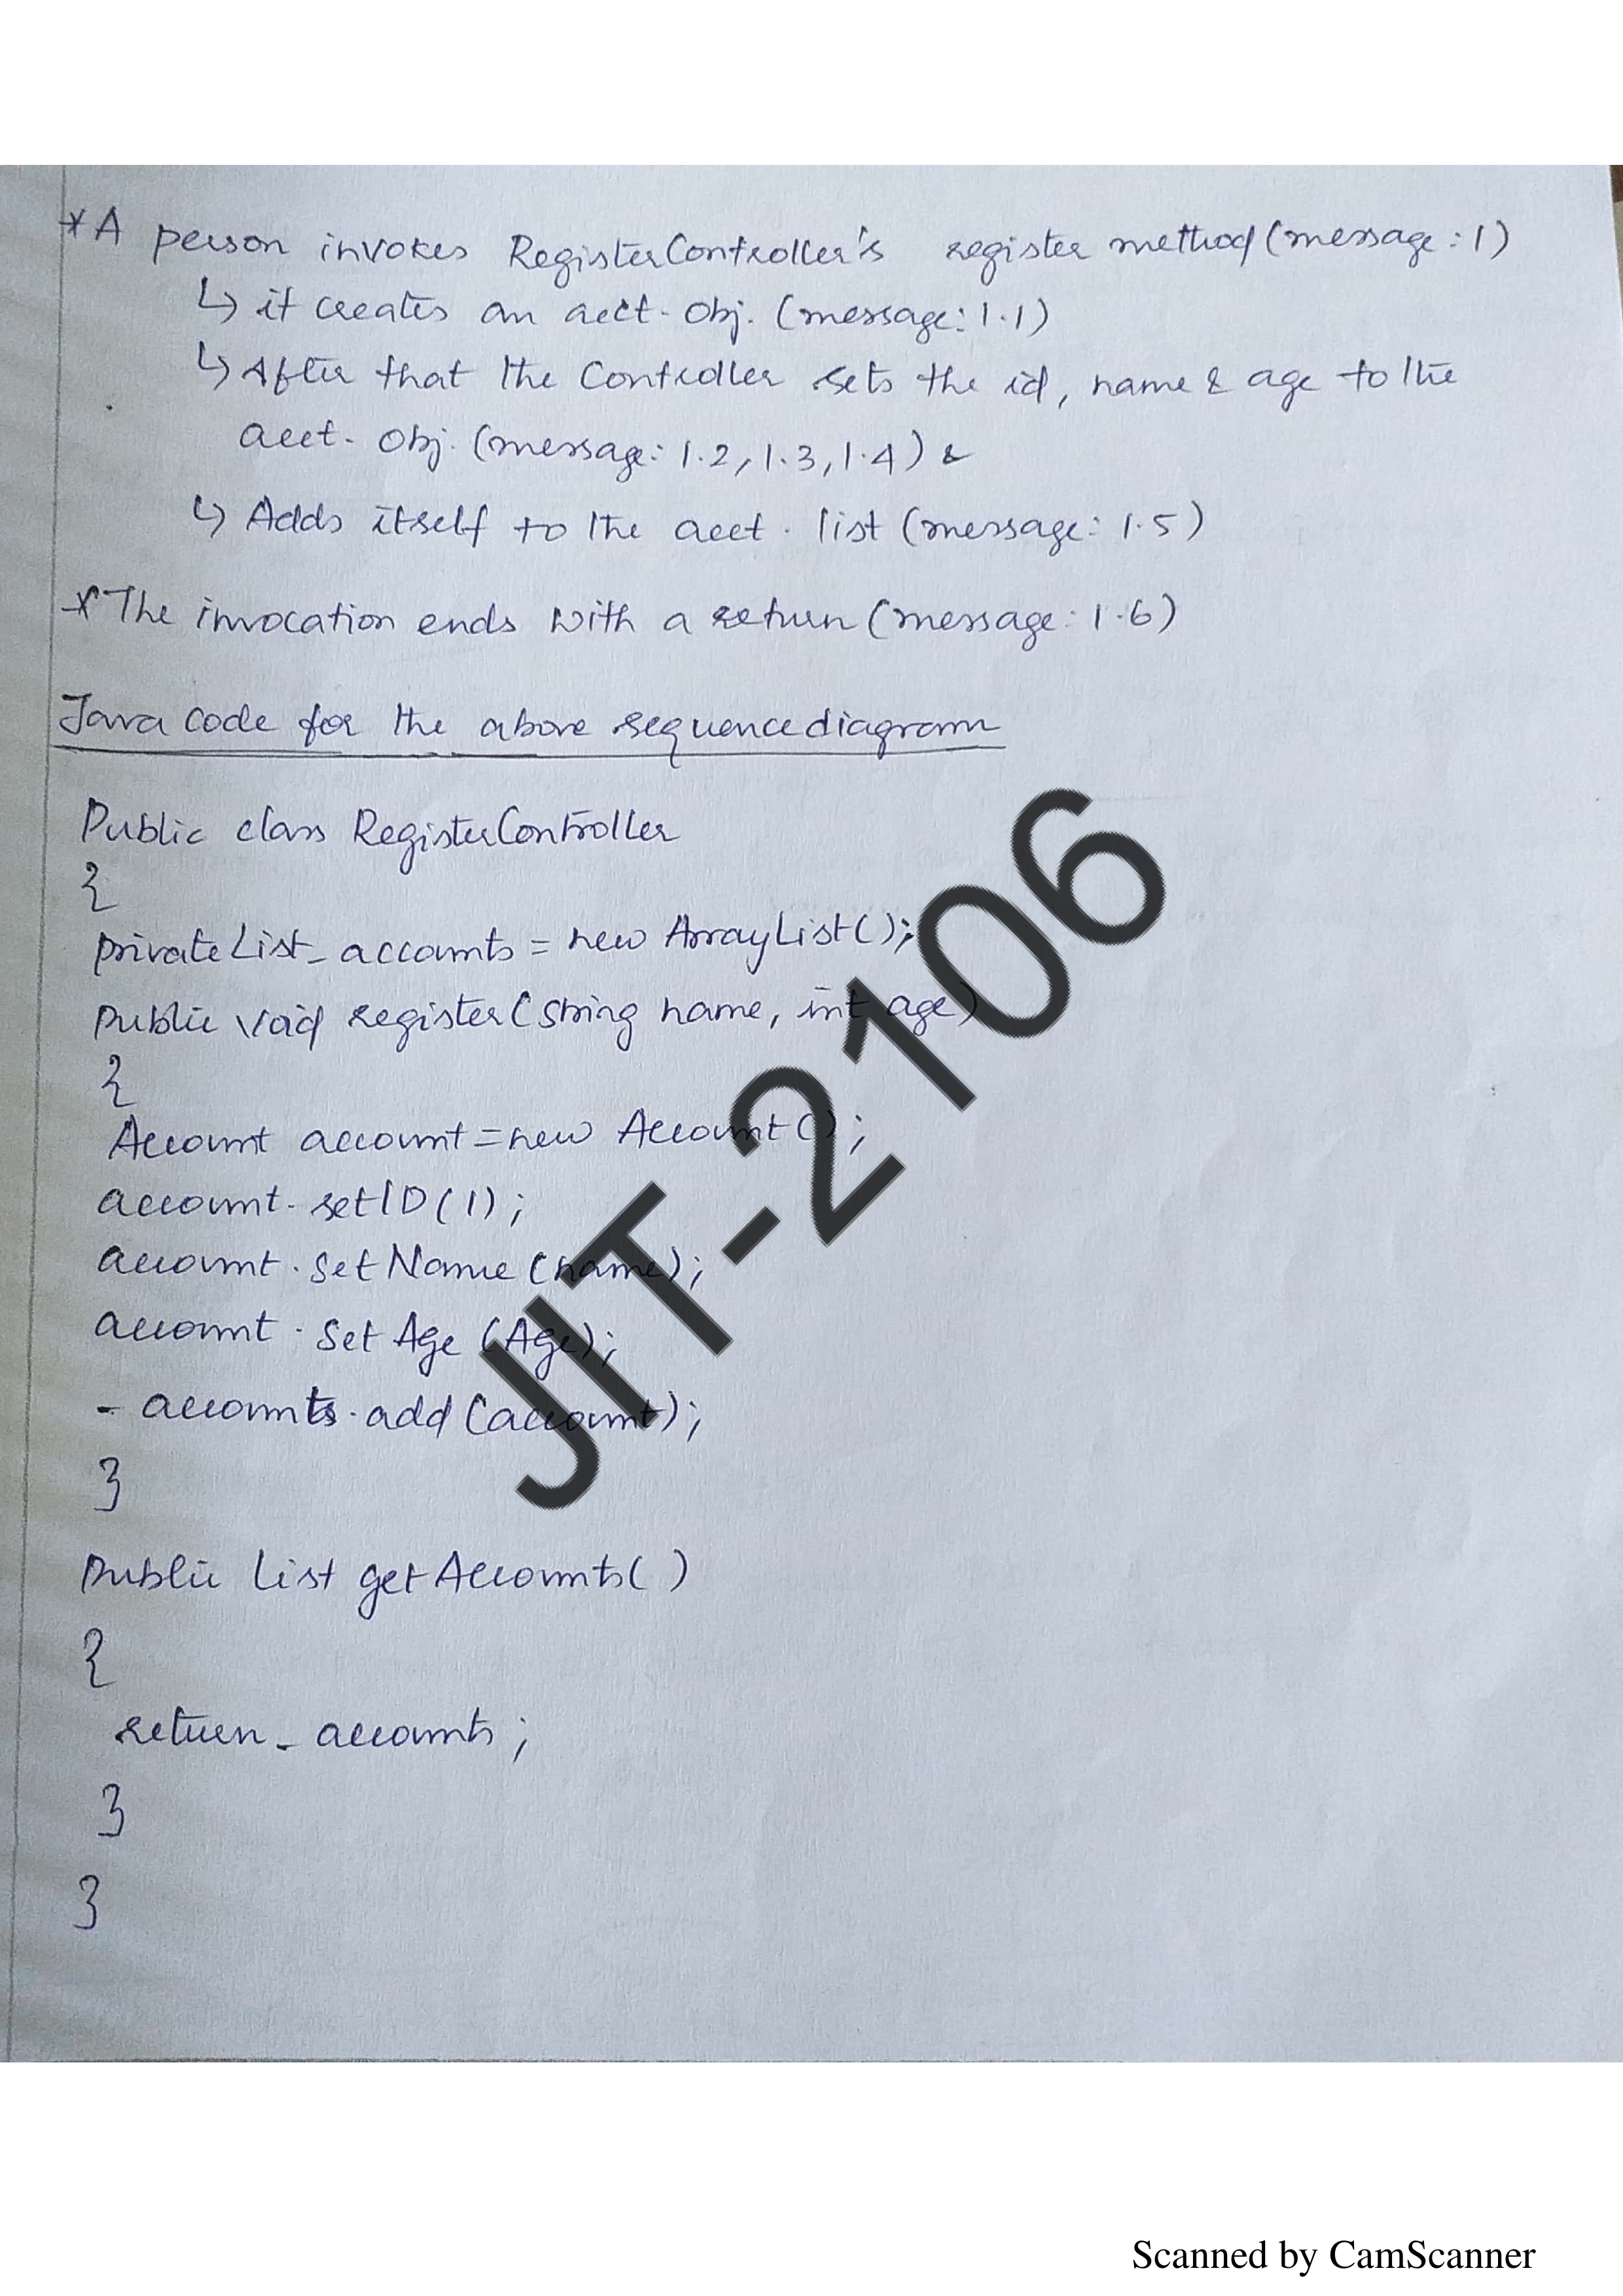 *A person invokes RegisterController's register method (message:1)
↳ it creates an acct. obj. (message:1.1)
↳ After that the Controller sets the id, name & age to the
acct. obj. (message: 1.2, 1.3, 1.4) &
↳ Adds itself to the acct. list (message: 1.5)
*The invocation ends with a return (message: 1.6)
Java code for the above sequence diagram
Public class RegisterController
{
private List_accounts = new ArrayList();
Public void register(String name, int age)
{
Account account = new Account();
account.setID(1);
account.setName(name);
account.setAge(Age);
_accounts.add(account);
}
Public List getAccounts()
{
return_accounts;
}
}
JIT-2106
Scanned by CamScanner